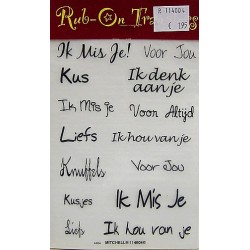 Rub-On Tra
R 114004
€ 1,95
Ik Mis Je! Voor Jou
Kus Ik denk
aan je
Ik Mis je Voor Altijd
Liefs Ik hou van je
Knuffels Voor Jou
Kusjes Ik Mis Je
Liefs Ik hou van je
MITCHELL R 114004